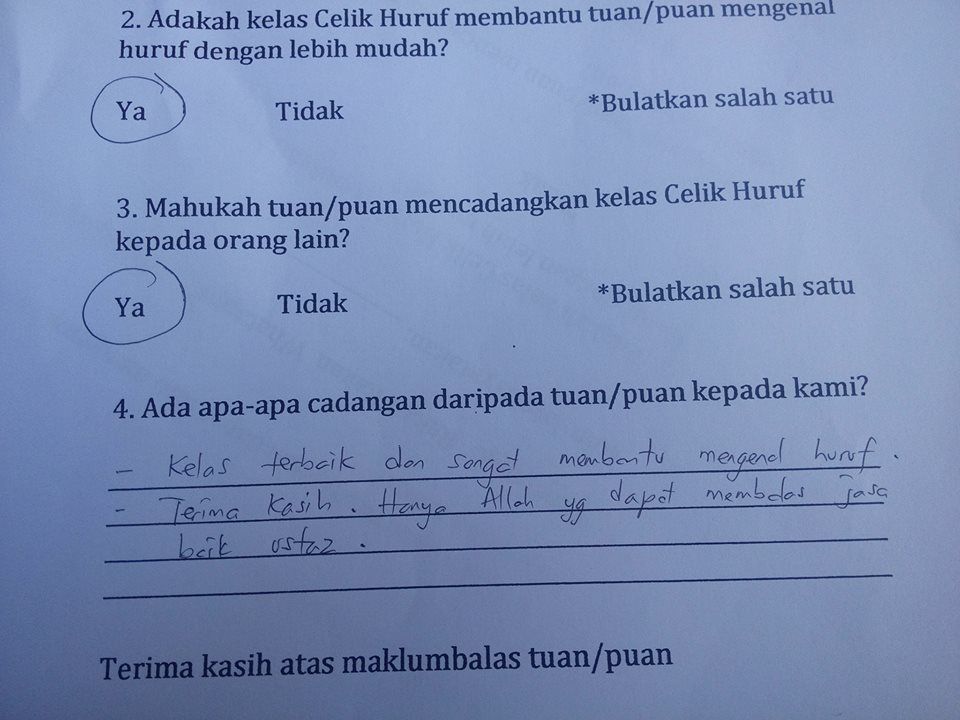 2. Adakah kelas Celik Huruf membantu tuan/puan mengenal
huruf dengan lebih mudah?
Ya Tidak *Bulatkan salah satu
3. Mahukah tuan/puan mencadangkan kelas Celik Huruf
kepada orang lain?
Ya Tidak *Bulatkan salah satu
4. Ada apa-apa cadangan daripada tuan/puan kepada kami?
- Kelas terbaik dan sangat membantu mengenal huruf.
- Terima Kasih. Hanya Allah yg dapat membalas jasa
baik ustaz.
Terima kasih atas maklumbalas tuan/puan